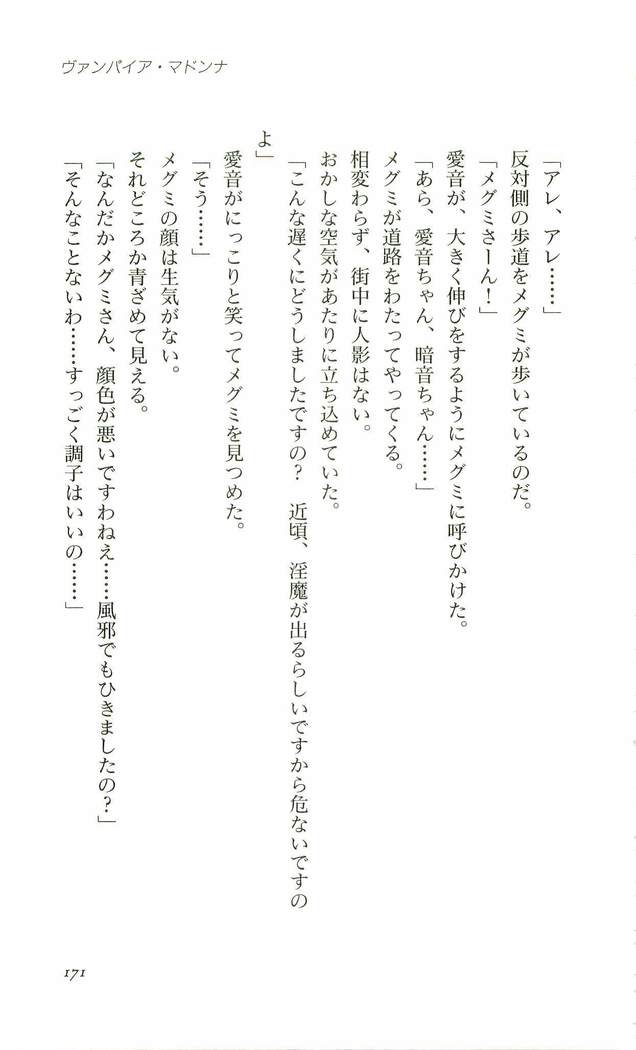 ヴァンパイア・マドンナ
「アレ、アレ……」
反対側の歩道をメグミが歩いているのだ。
「メグミさーん！」
愛音が、大きく伸びをするようにメグミに呼びかけた。
「あら、愛音ちゃん、暗音ちゃん……」
メグミが道路をわたってやってくる。
相変わらず、街中に人影はない。
おかしな空気があたりに立ち込めていた。
「こんな遅くにどうしましたですの？　近頃、淫魔が出るらしいですから危ないですの
よ」
愛音がにっこりと笑ってメグミを見つめた。
「そう……」
メグミの顔は生気がない。
それどころか青ざめて見える。
「なんだかメグミさん、顔色が悪いですわねえ……風邪でもひきましたの？」
「そんなことないわ……すっごく調子はいいの……」
171